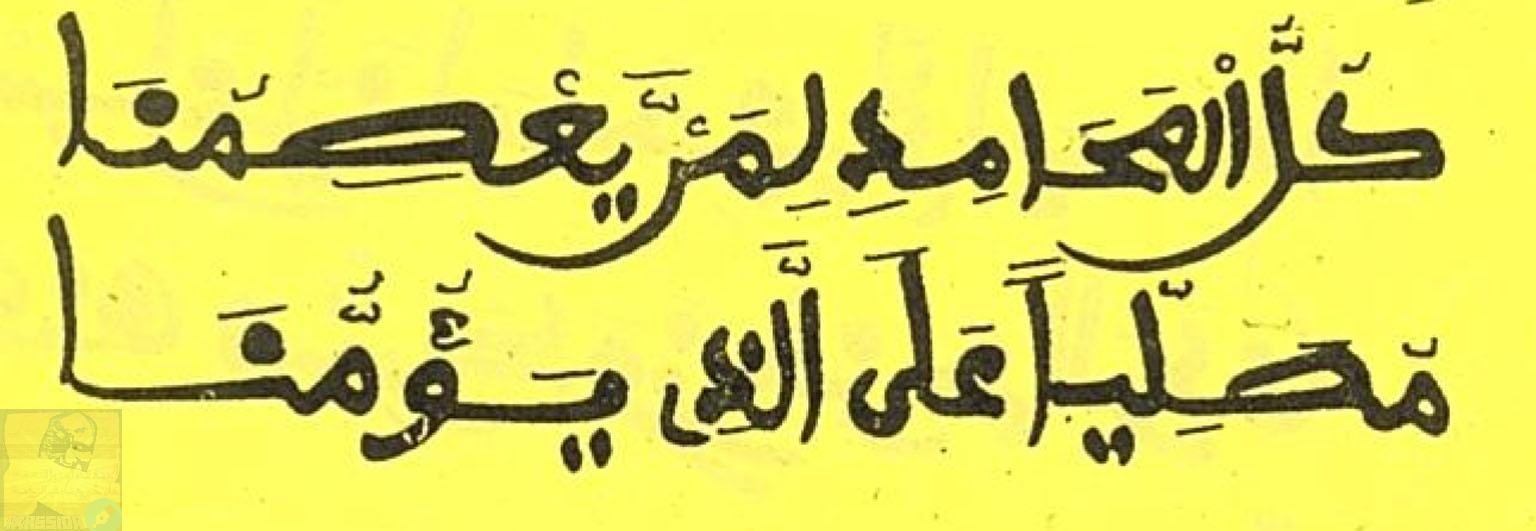 كُلُّ الْمَحَامِدِ لِمَنْ يَّعْصِمُنَا
مُصَلِّياً عَلَى الَّذِى يَؤُمُّنَا